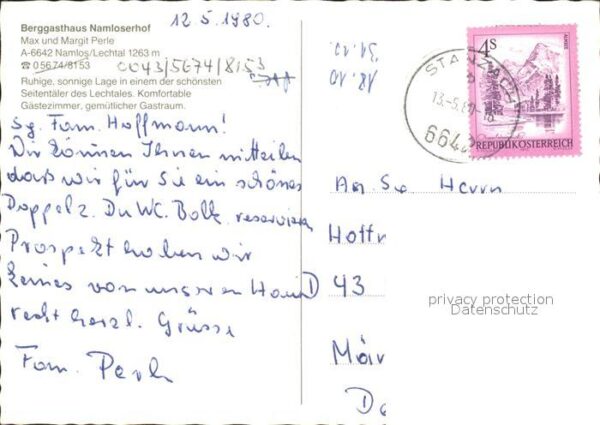 Berggasthaus Namloserhof
Max und Margit Perle
A-6642 Namlos/Lechtal 1263 m
☎ 05674/8153
Ruhige, sonnige Lage in einem der schönsten
Seitentäler des Lechtales. Komfortable
Gästezimmer, gemütlicher Gastraum.
12.5.1980.
0043/5674/8153
Sg. Fam. Hoffmann!
Wir können Ihnen mitteilen
daß wir für Sie ein schönes
Doppelz. Du WC. Balk. reservieren
Prospekt haben wir
keines von unserem Haus
recht herzl. Grüsse
Fam. Perle
4S
ALMSEE
REPUBLIK ÖSTERREICH
STANZACH
13.-5.80
6642
An Sie Herrn
Hoff
D 43
privacy protection
Datenschutz